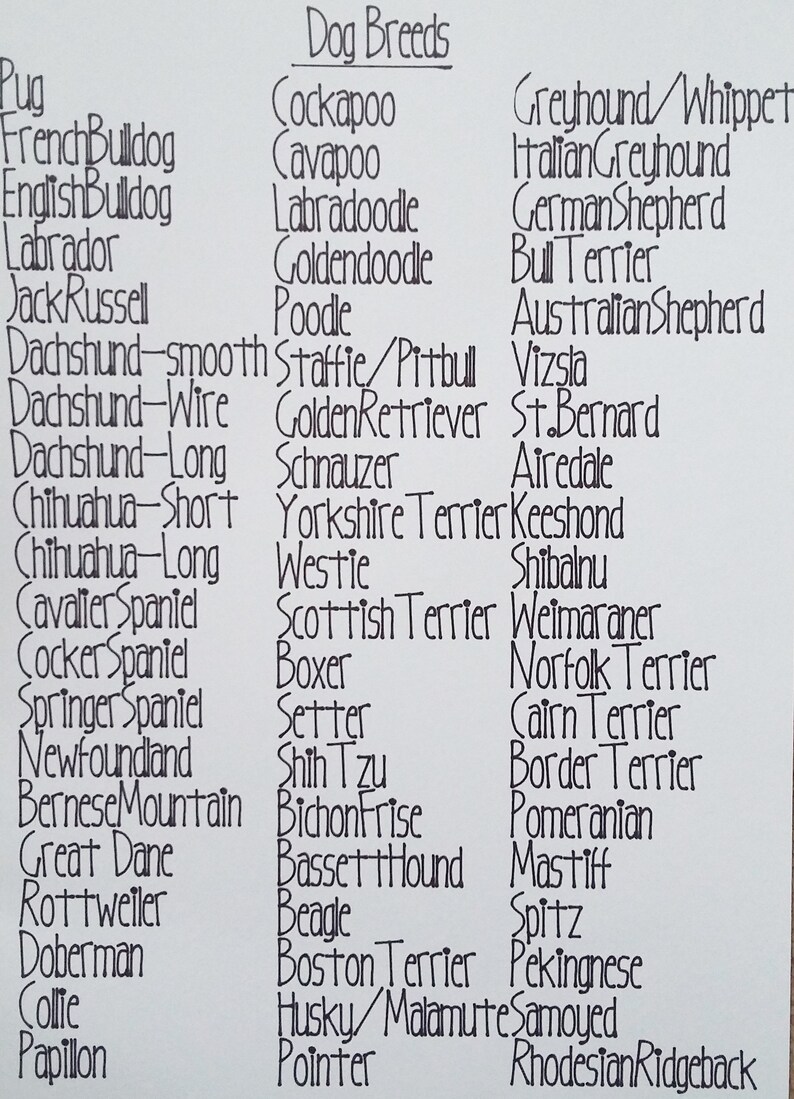 Dog Breeds
Pug
FrenchBulldog
EnglishBulldog
Labrador
JackRussell
Dachshund-smooth
Dachshund-Wire
Dachshund-Long
Chihuahua-Short
Chihuahua-Long
CavalierSpaniel
CockerSpaniel
SpringerSpaniel
Newfoundland
BerneseMountain
Great Dane
Rottweiler
Doberman
Collie
Papillon
Cockapoo
Cavapoo
Labradoodle
Goldendoodle
Poodle
Staffie/Pitbull
GoldenRetriever
Schnauzer
Yorkshire Terrier
Westie
Scottish Terrier
Boxer
Setter
Shih Tzu
BichonFrise
BassettHound
Beagle
Boston Terrier
Husky/Malamute
Pointer
Greyhound/Whippet
ItalianGreyhound
GermanShepherd
Bull Terrier
AustralianShepherd
Vizsla
St.Bernard
Airedale
Keeshond
ShibaInu
Weimaraner
Norfolk Terrier
Cairn Terrier
Border Terrier
Pomeranian
Mastiff
Spitz
Pekingnese
Samoyed
RhodesianRidgeback